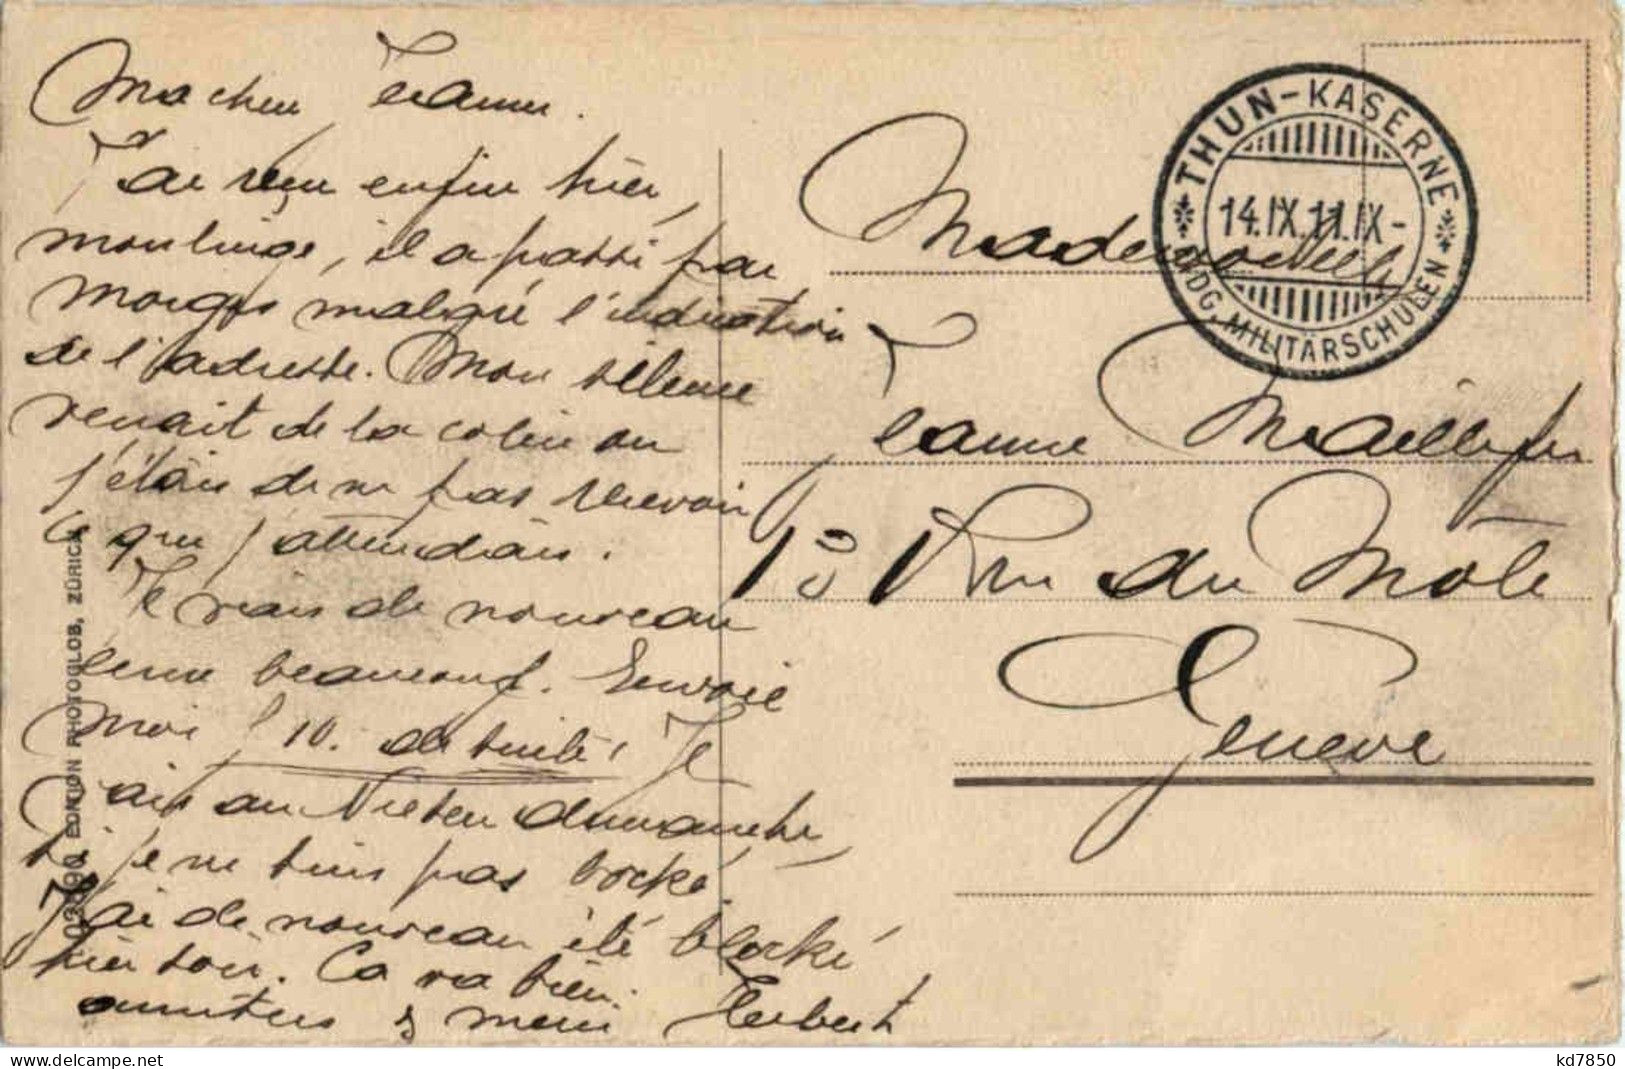 Ma chère Jeanne.
J'ai reçu enfin hier,
mon linge, il a passé par
Morges malgré l'indication
de l'adresse. Mon silence
venait de la colère ou
j'étais de ne pas recevoir
ce que j'attendais.
Je vais de nouveau
beaucoup. Envoie
moi f 10. de suite! Je
vais au Niesen dimanche,
si je ne suis pas bocké,
J'ai de nouveau été blocké
hier soir. Ca va bien.
amitiés & merci Herbert
EDITION PHOTOGLOB, ZÜRICH
THUN-KASERNE
14.IX.11.IX-
EIDG. MILITÄRSCHULEN
Mademoiselle
Jeanne Maillefer
Rue du Môle
Genève
kd7850